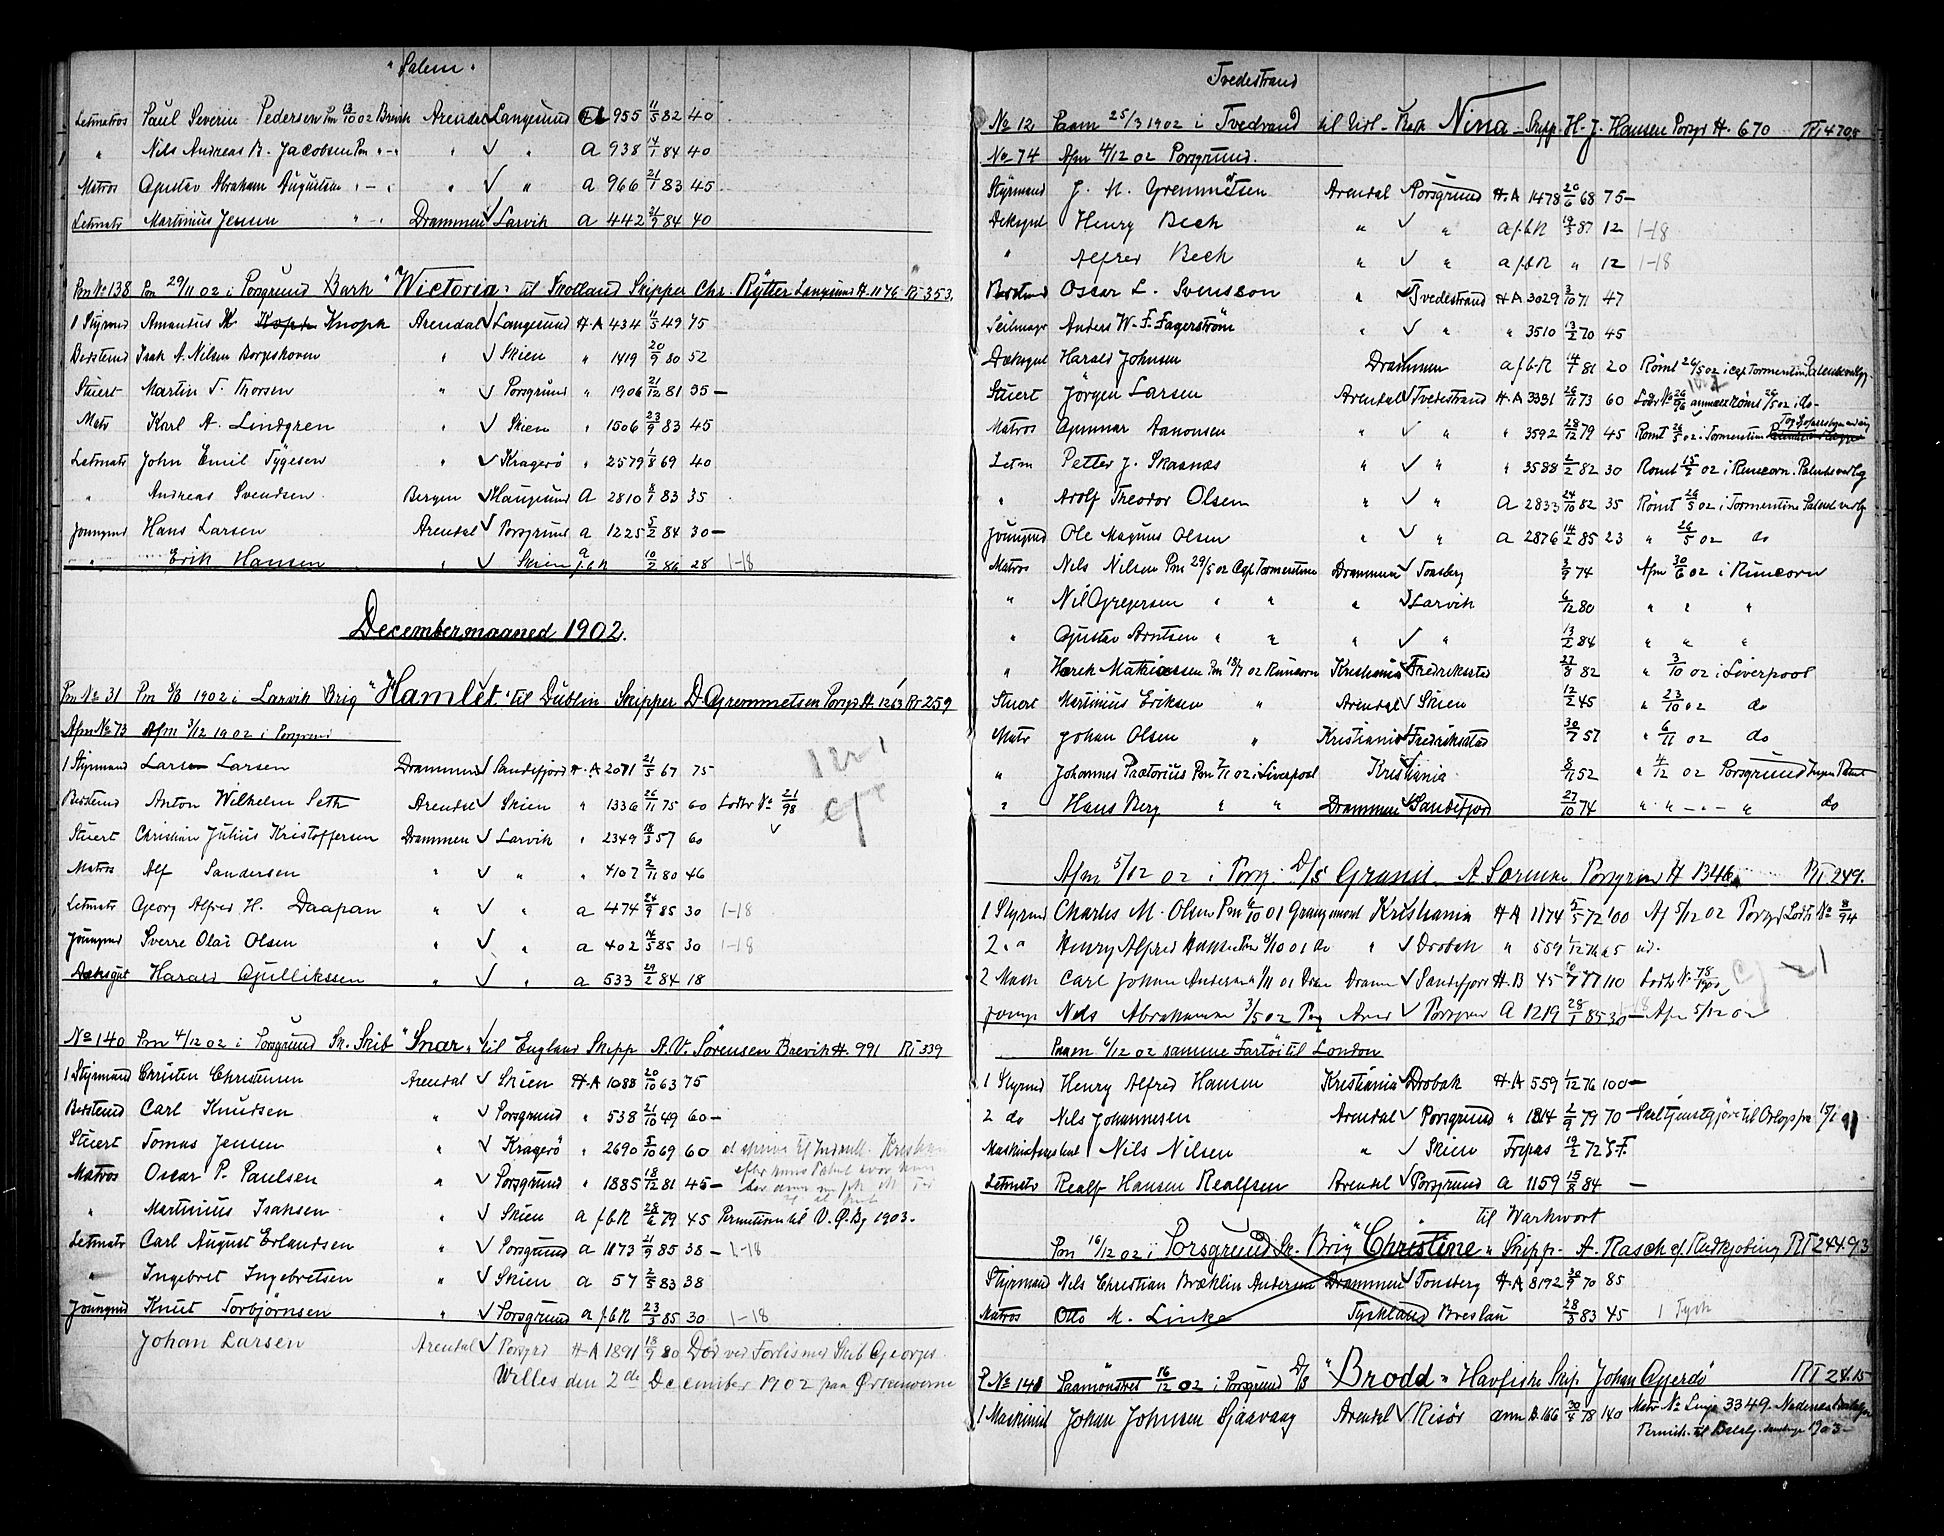 "Salem"
Letmatros Paul Severin Pedersen Pm 13/10 02 Brevik Arendal Langesund 955 11/5 82 40
" Nils Andreas B. Jacobsen Pm " - " " " a 938 14/1 84 40
Matros Gustav Abraham Augustsen " - " " " a 966 21/1 83 45
Letmatr Martinius Jensen " - " Drammen Larvik a 442 21/9 84 40
Pm No 138 Pm 29/11 02 i Porsgrund Bark "Wictoria" til Skotland Skipper Chr. Rytter Langesund H. 1176 RT 353.
1 Styrmnd Amandus Knoph Arendal Langesund H.A 434 11/5 49 75
Bedstemd Isak A. Nilsen Borgeskoven " Skien " 1419 20/9 80 52
Stuert Martin T. Thorsen " Porsgrund " 1906 21/12 81 35 -
Matr Karl A. Lindgren " Skien " 1506 23/9 83 45
Letmatr John Emil Tygesen " Kragerö " 2579 1/8 69 40
" Andreas Svendsen Bergen Haugesund A 2810 8/1 83 35
Joungmd Hans Larsen Arendal Porsgrund a 1225 5/2 84 30 -
" Erik Hansen " Skien a f.b.R 10/2 86 28 1-18
Decembermaaned 1902.
Pm No 31 Pm 1902 i Larvik Brig "Hamlet" til Dublin Skipper D. Gremmetsen Porsgr H. 1263 RT 259
Afm No 73 Afm 3/12 1902 i Porsgrund
1 Styrmand Lars Larsen Drammen Sandefjord H.A 2071 21/5 67 75
Bedstemd Anton Wilhelm Seth Arendal Skien " 1336 26/11 75 60 Lodbr No 21/98
Stuert Christian Julius Kristoffersen Drammen Larvik " 2349 18/3 57 60
Matros Alf Sandersen " " " 4107 2/11 80 46
Letmatr Georg Alfred H. Daapan " " a 474 24/9 85 30 1-18
Joungmd Sverre Olai Olsen " " a 402 16/5 85 30 1-18
Dæksgut Harald Gulliksen " " a 533 29/2 84 18
No 140 Pm 4/12 02 i Porsgrund Sk. Skib "Snar" til England Skipp A. V. Sörensen Brevik H. 991 RT 339
1 Styrmand Christen Christensen Arendal Skien H.A 1088 20/10 63 75
Bedstemd Carl Knudsen " Porsgrund " 538 21/10 49 60 -
Stuert Tomas Jensen " Kragerö " 2690 5/10 69 60
Matros Oscar P. Paulsen " Porsgrund " 1885 18/12 81 45 -
" Martinius Isaksen " Skien a f.b.R 28/6 79 45 Permitteret til V. P. By 1903.
Letmatr Carl August Erlandsen " Porsgrund a 1173 21/9 85 38 - 1-18
" Ingebret Ingebretsen " Skien a 57 2/5 83 38
Joungmd Knut Torbjørnsen " Porsgrund a f.b.R 23/3 85 30 1-18
Johan Larsen Arendal Porsgrd H-A 1891 18/9 80 Död ved Forlis med Skib Georges
Willes den 2de December 1902 paa Örkenoerne
Tvedestrand
No 12 Paam 25/3 1902 i Tvedrand til Bark Nina - Skipp H. J. Hansen Porsgr H. 670 RT 470,5
No 74 Afm 4/12 02 Porsgrund.
Styrmand J. N. Gremmetsen Arendal Porsgrund H.A 1478 20/6 68 75 -
Deksgut Henry Bech " " a f.b.R 19/5 87 12 1-18
" Alfred Bech " " a f.b.R " 12 1-18
Bedstmnd Oscar L. Svensson " Tvedestrand H A 3029 3/10 71 47
Seilmagr Anders W. F. Fagerström " " " 3510 13/2 70 45
Dæksgut Harald Johnsen Drammen a f.b.R 14/1 81 20 Römt 26/5 02 i Cap Tormentin
Stuert Jörgen Larsen Arendal Tvedestrand H.A 3331 26/11 73 60 Lodbr No 26/96 Römt 26/5 02 i do -
Matros Gunnar Aanonsen " " " 3592 28/12 79 45 Römt 26/5 02 i Tormentin
Letm Petter J. Skaanæs " " " 3588 2/2 82 30 Römt 15/7 02 i Runcorn. Patent vedlg
" Adolf Theodor Olsen " " A 2833 24/10 82 35 Römt 26/5 02 i Tormentine Patent vedlg
Joungmd Ole Magnus Olsen " " A 2876 14/2 85 23 " 26/5 02 do
Matros Nils Nilsen Pm 29/5 02 Cap Tormentine Drammen Tonsberg 3/9 74 Afm 30/6 02 i Runcorn
" Nil Gregersen " " " Larvik 6/12 80 " " "
" Gustav Arntsen " " " " 13/2 84 " " "
" Harek Mathiassen Pm 18/7 02 Runcorn Kristiania Fredrikstad 27/8 82 " 3/10 02 i Liverpool
Stuert Martinius Eriksen " Arendal Skien 12/2 45 " 23/10 02 do
Matr Johan Olsen " Kristiania Fredrikstad 30/7 57 " 6/11 02 do
" Johannes Prætorius Pm 7/11 02 i Liverpool Kristiania 8/11 52 " 4/12 02 Porsgrund Ingen Patent
" Hans Berg " " Drammen Sandefjord 27/10 74 " " - " - " do
Afm 5/12 02 i Porsg. D/S Granit A. Sörensen Porsgrund H 1346 RT 249.
1 Styrmd Charles M. Olsen Pm 6/10 01 Grangemout Kristiania H A 1174 5/5 72 100 Af 5/12 02 Porsgr Lodb No 8/94
2 " " Henry Alfred Hansen Pm 9/10 01 do " Drobak " 559 1/12 76 65 ud.
2 Mask Carl Johan Andersen 1/11 01 Dram Sandefjord H.B 45 10/7 77 110 Lodb No 78/1900
Joung Nils Abrahamsen 3/5 02 Porsg Arend Porsgrun A 1219 28/1 85 30 - Afm 5/12 02
Paam 6/12 02 samme Fartöi til London
1 Styrmd Henry Alfred Hansen Kristiania Drobak H-A 559 1/12 76 100 -
2 do Nils Johannesen Arendal Porsgrund " 1814 2/9 79 70 Skal tjenestgjöre til Orlogs fra 15/1
Maskinist Nils Nilsen " Skien Fripas 19/2 72 S.F.
Letmatr Realf Hansen Realfsen Arendal Porsgrund a 1159 15/8 84 -
til Warkwort
Pm 16/12 02 i Porsgrund Sk. Brig "Christine" Skipp. A. Rasch af Rudkjobing RT 244.93
Styrmand Nils Christian Bræklin Andersen Drammen Tonsberg H.A 8192 30/9 70 85
Matros Otto M. Linke Tyskland Breslau 28/5 83 45 1 Tysk
P. No 141 Paamönstret 16/12 02 i Porsgrund D/S "Brodd" Havfiske Skip. Johan Gjerdö RT 24.15
1 Maskinist Johan Johnsen Sjaavaag Arendal Risör ann B. 166 30/4 78 140 Matr No Linje 3349.
Permit. til 1903 -